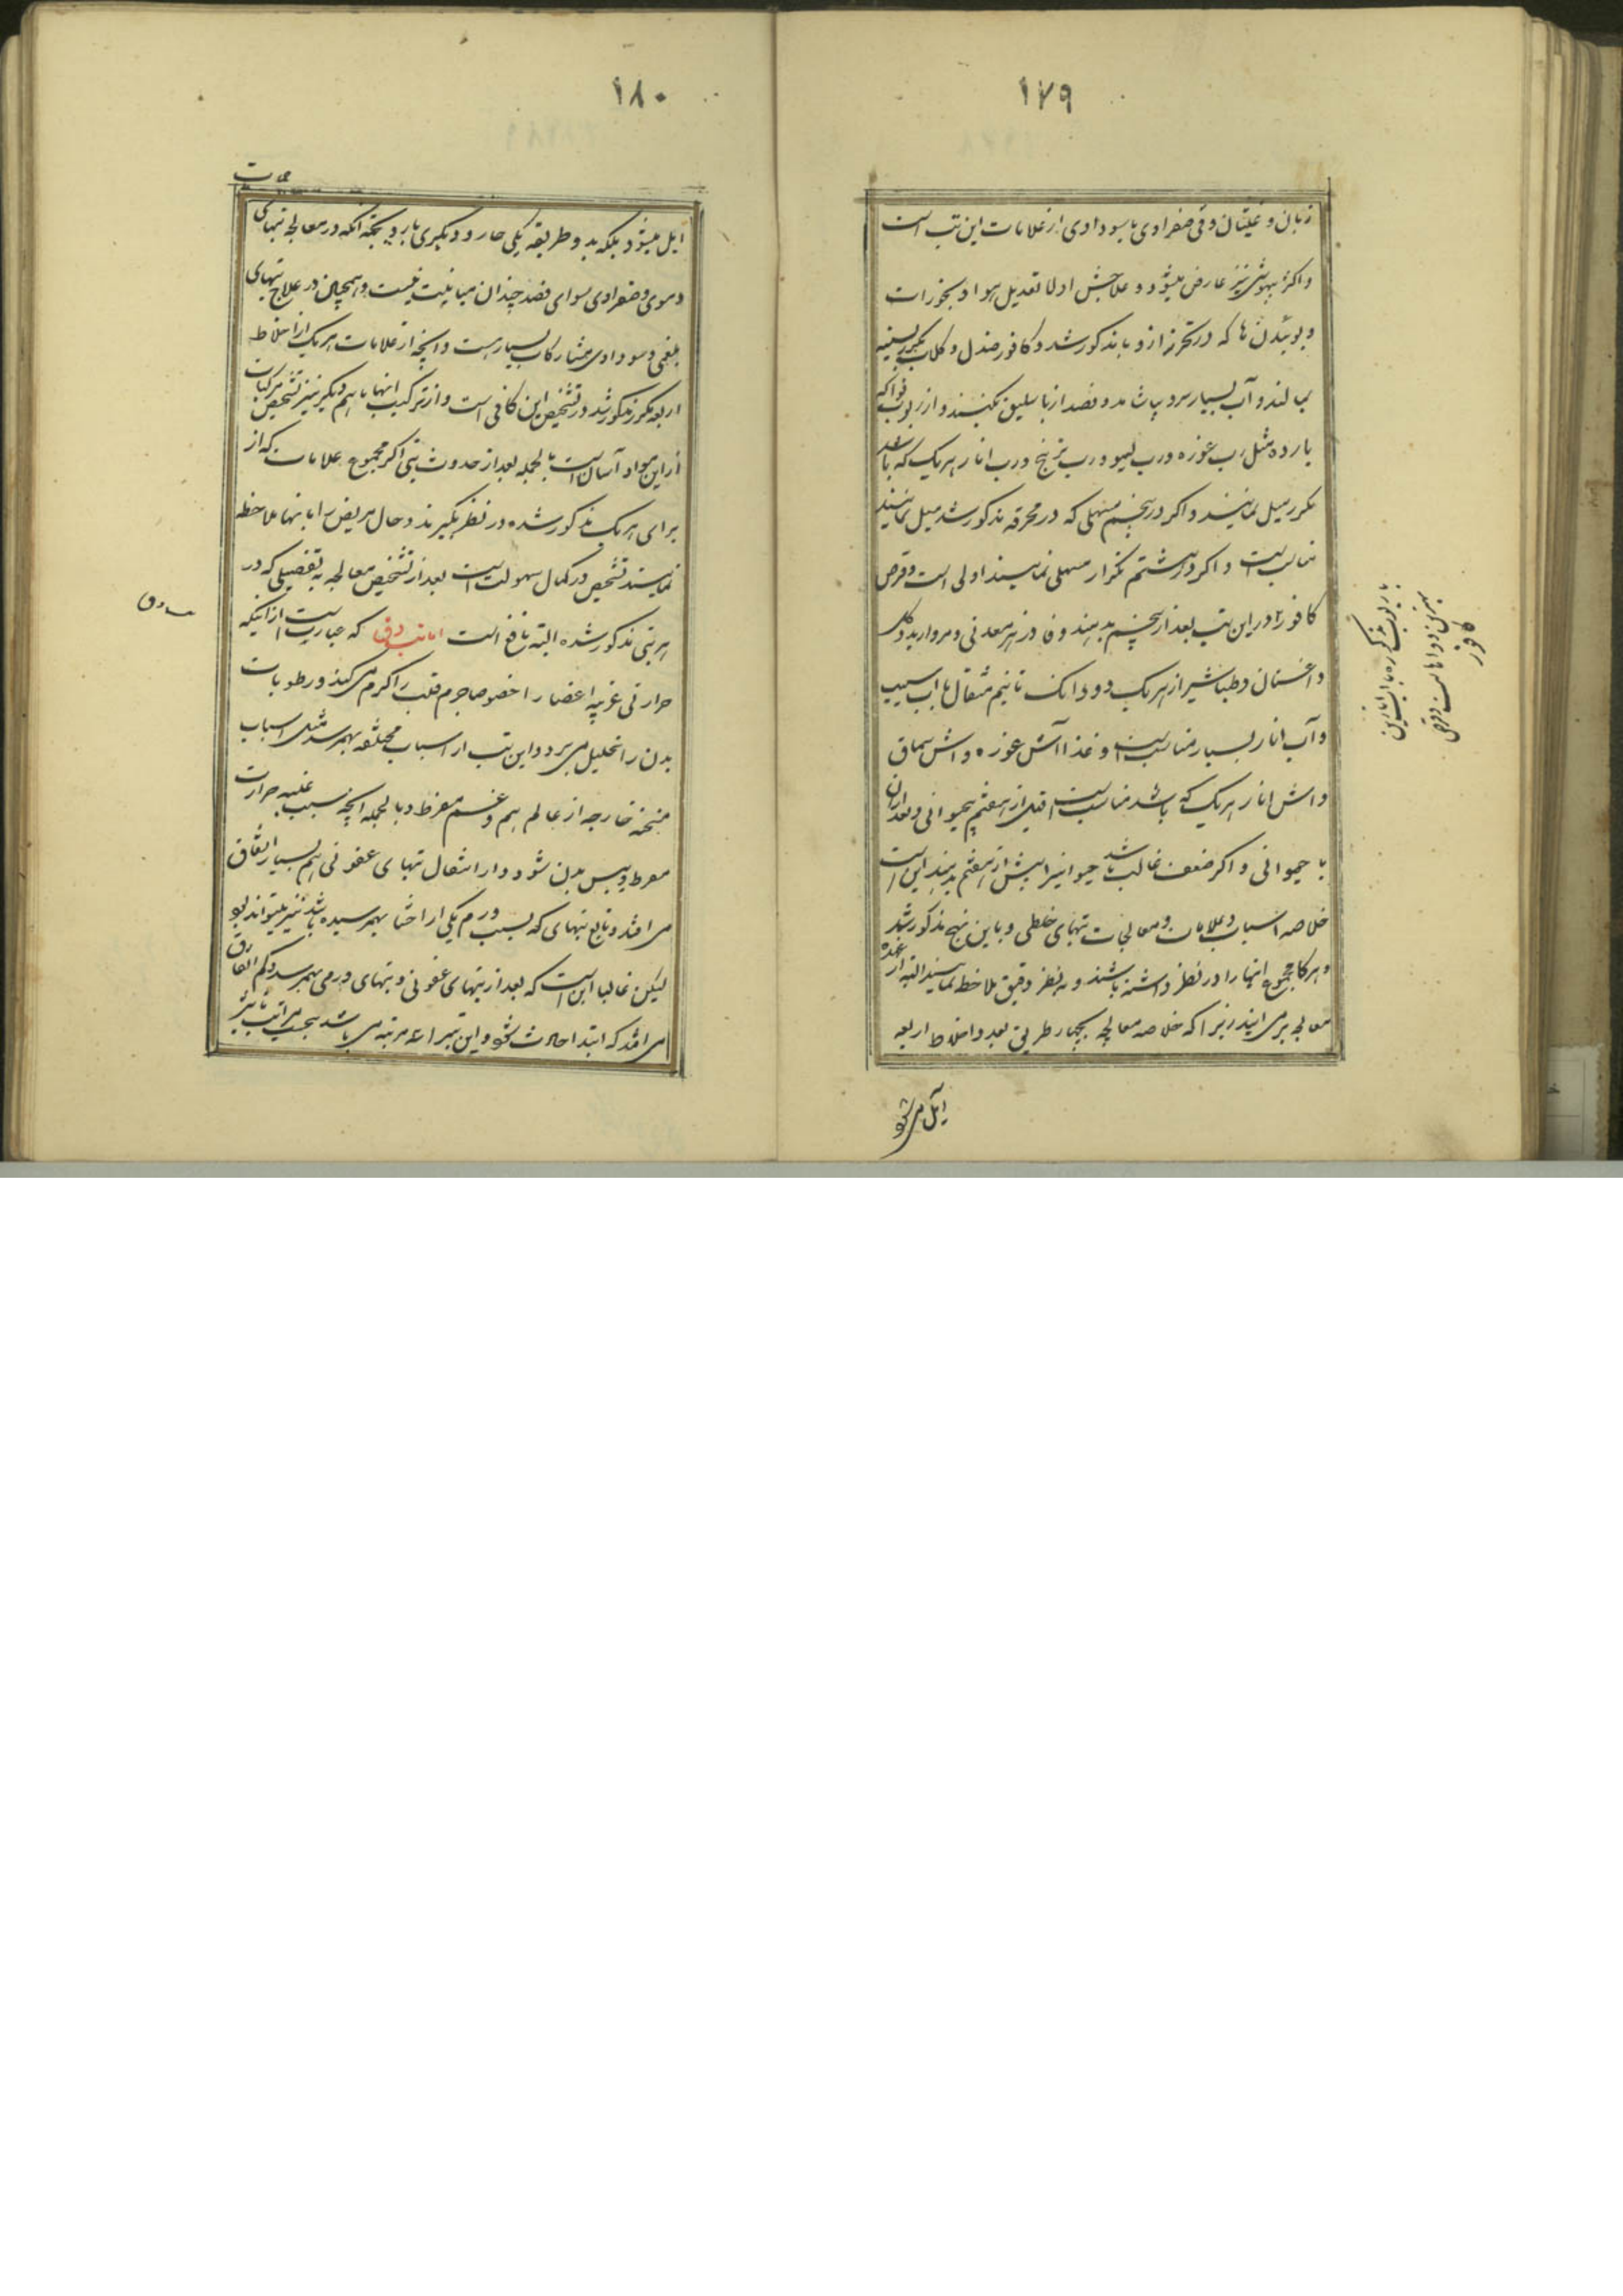 ۱۷۹
زبان و غثیان و قی صفراوی یا سوداوی از علامات این تب است
و اکثر بیهوشی نیز عارض میشود و علاجش اولا تعدیل هوا و بخورات
و بوئیدن ها که در تحرز از وبا مذکور شد و کافور صندل و گلاب بسینه
بمالند و آب بسیار سرد بپاشند و فصد از باسلیق بکنند و از ربوب فواکه
بارده مثل رب غوره و رب لیمو و رب ترنج و رب انار هریک که باشد
مکرر میل نمایند و اگر در پنجم مسهلی که در محرقه مذکور شد میل نمایند
مناسب است و اگر در هشتم تکرار مسهلی نمایند اولی است و قرص
کافور در این تب بعد از پنجم بدهند و فادزهر معدنی و مروارید و گل
داغستان و طباشیر از هریک دو دانک تا نیم مثقال با آب سیب
و آب انار بسیار مناسب است و غذا آش غوره و آش سماق
و آش انار هریک که باشد مناسب است قبل از هفتم بیحیوانی و بعد از آن
با حیوانی و اگر ضعف غالب باشد حیوانی را پیش از هفتم بدهند این است
خلاصه اسباب و علامات و معالجات تبهای خلطی و باین نهج مذکور شد
و هرگاه مجموع اینها را در نظر داشته باشند و به نظر دقیق ملاحظه نمایند البته از عهده
معالجه برمی آیند زیرا که خلاصه معالجه بچهار طریق بعد و اخلاط اربعه
آیل می شود
بهترین دواها است قرص
کافور
۱۸۰
ایل میشود بلکه بدو طریقه یکی حار و دیگری بارد بجهة آنکه در معالجه تبهای
دموی و صفراوی سوای فصد چندان مباینت نیست و همچنان در علاج تبهای
بلغمی و سوداوی مشارکات بسیار هست و آنچه از علامات هریک از اخلاط
اربعه مکرر مذکور شد در تشخیص این کافی است و از ترکیب اینها با هم دیگر نیز تشخیص مرکبات
از این مواد آسان است بالجمله بعد از حدوث تبی اگر مجموع علامات که از
برای هریک مذکور شده در نظر بگیرند و حال مریض را با اینها ملاحظه
نمایند تشخیص در کمال سهولت است بعد از تشخیص معالجه به تفصیلی که در
هر تبی مذکور شده البته نافع است اما تب دق که عبارت است از اینکه
حرارتی غریبه اعضا را خصوصا جرم قلب را گرم می کند و رطوبات
بدن را تحلیل می برد و این تب از اسباب مختلفه بهم رسد مثل اسباب
مسخنه خارجه از عالم هم و غم مفرط و بالجمله آنچه سبب غلبه حرارت
مفرط و یبس بدن شود و از انتقال تبهای عفونی هم بسیار اتفاق
می افتد و تابع تبهای که بسبب ورم یکی از احشا بهم رسیده باشد نیز میتواند بود
لیکن غالبا این است که بعد از تبهای عفونی و تبهای ورمی بهم رسد و کم اتفاق
می افتد که ابتدا حادث شود و این تب را سه مرتبه می باشد بحسب مراتب تاثیر
تب دق